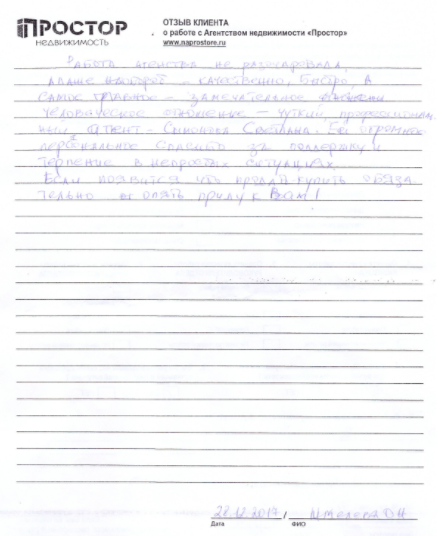 ПРОСТОР
НЕДВИЖИМОСТЬ
ОТЗЫВ КЛИЕНТА
о работе с Агентством недвижимости «Простор»
www.naprostore.ru
Работа агенства не разочаровала,
а даже наоборот - качественно, быстро, а
самое главное - замечательное
человеческое отношение - чуткий, профессиональ
ный агент - Светлана. Ей огромное
персональное спасибо за поддержку и
терпение в непростых ситуациях.
Если появится что продать-купить обяза
тельно опять приду к Вам!
28.12.2017 /
Дата ФИО